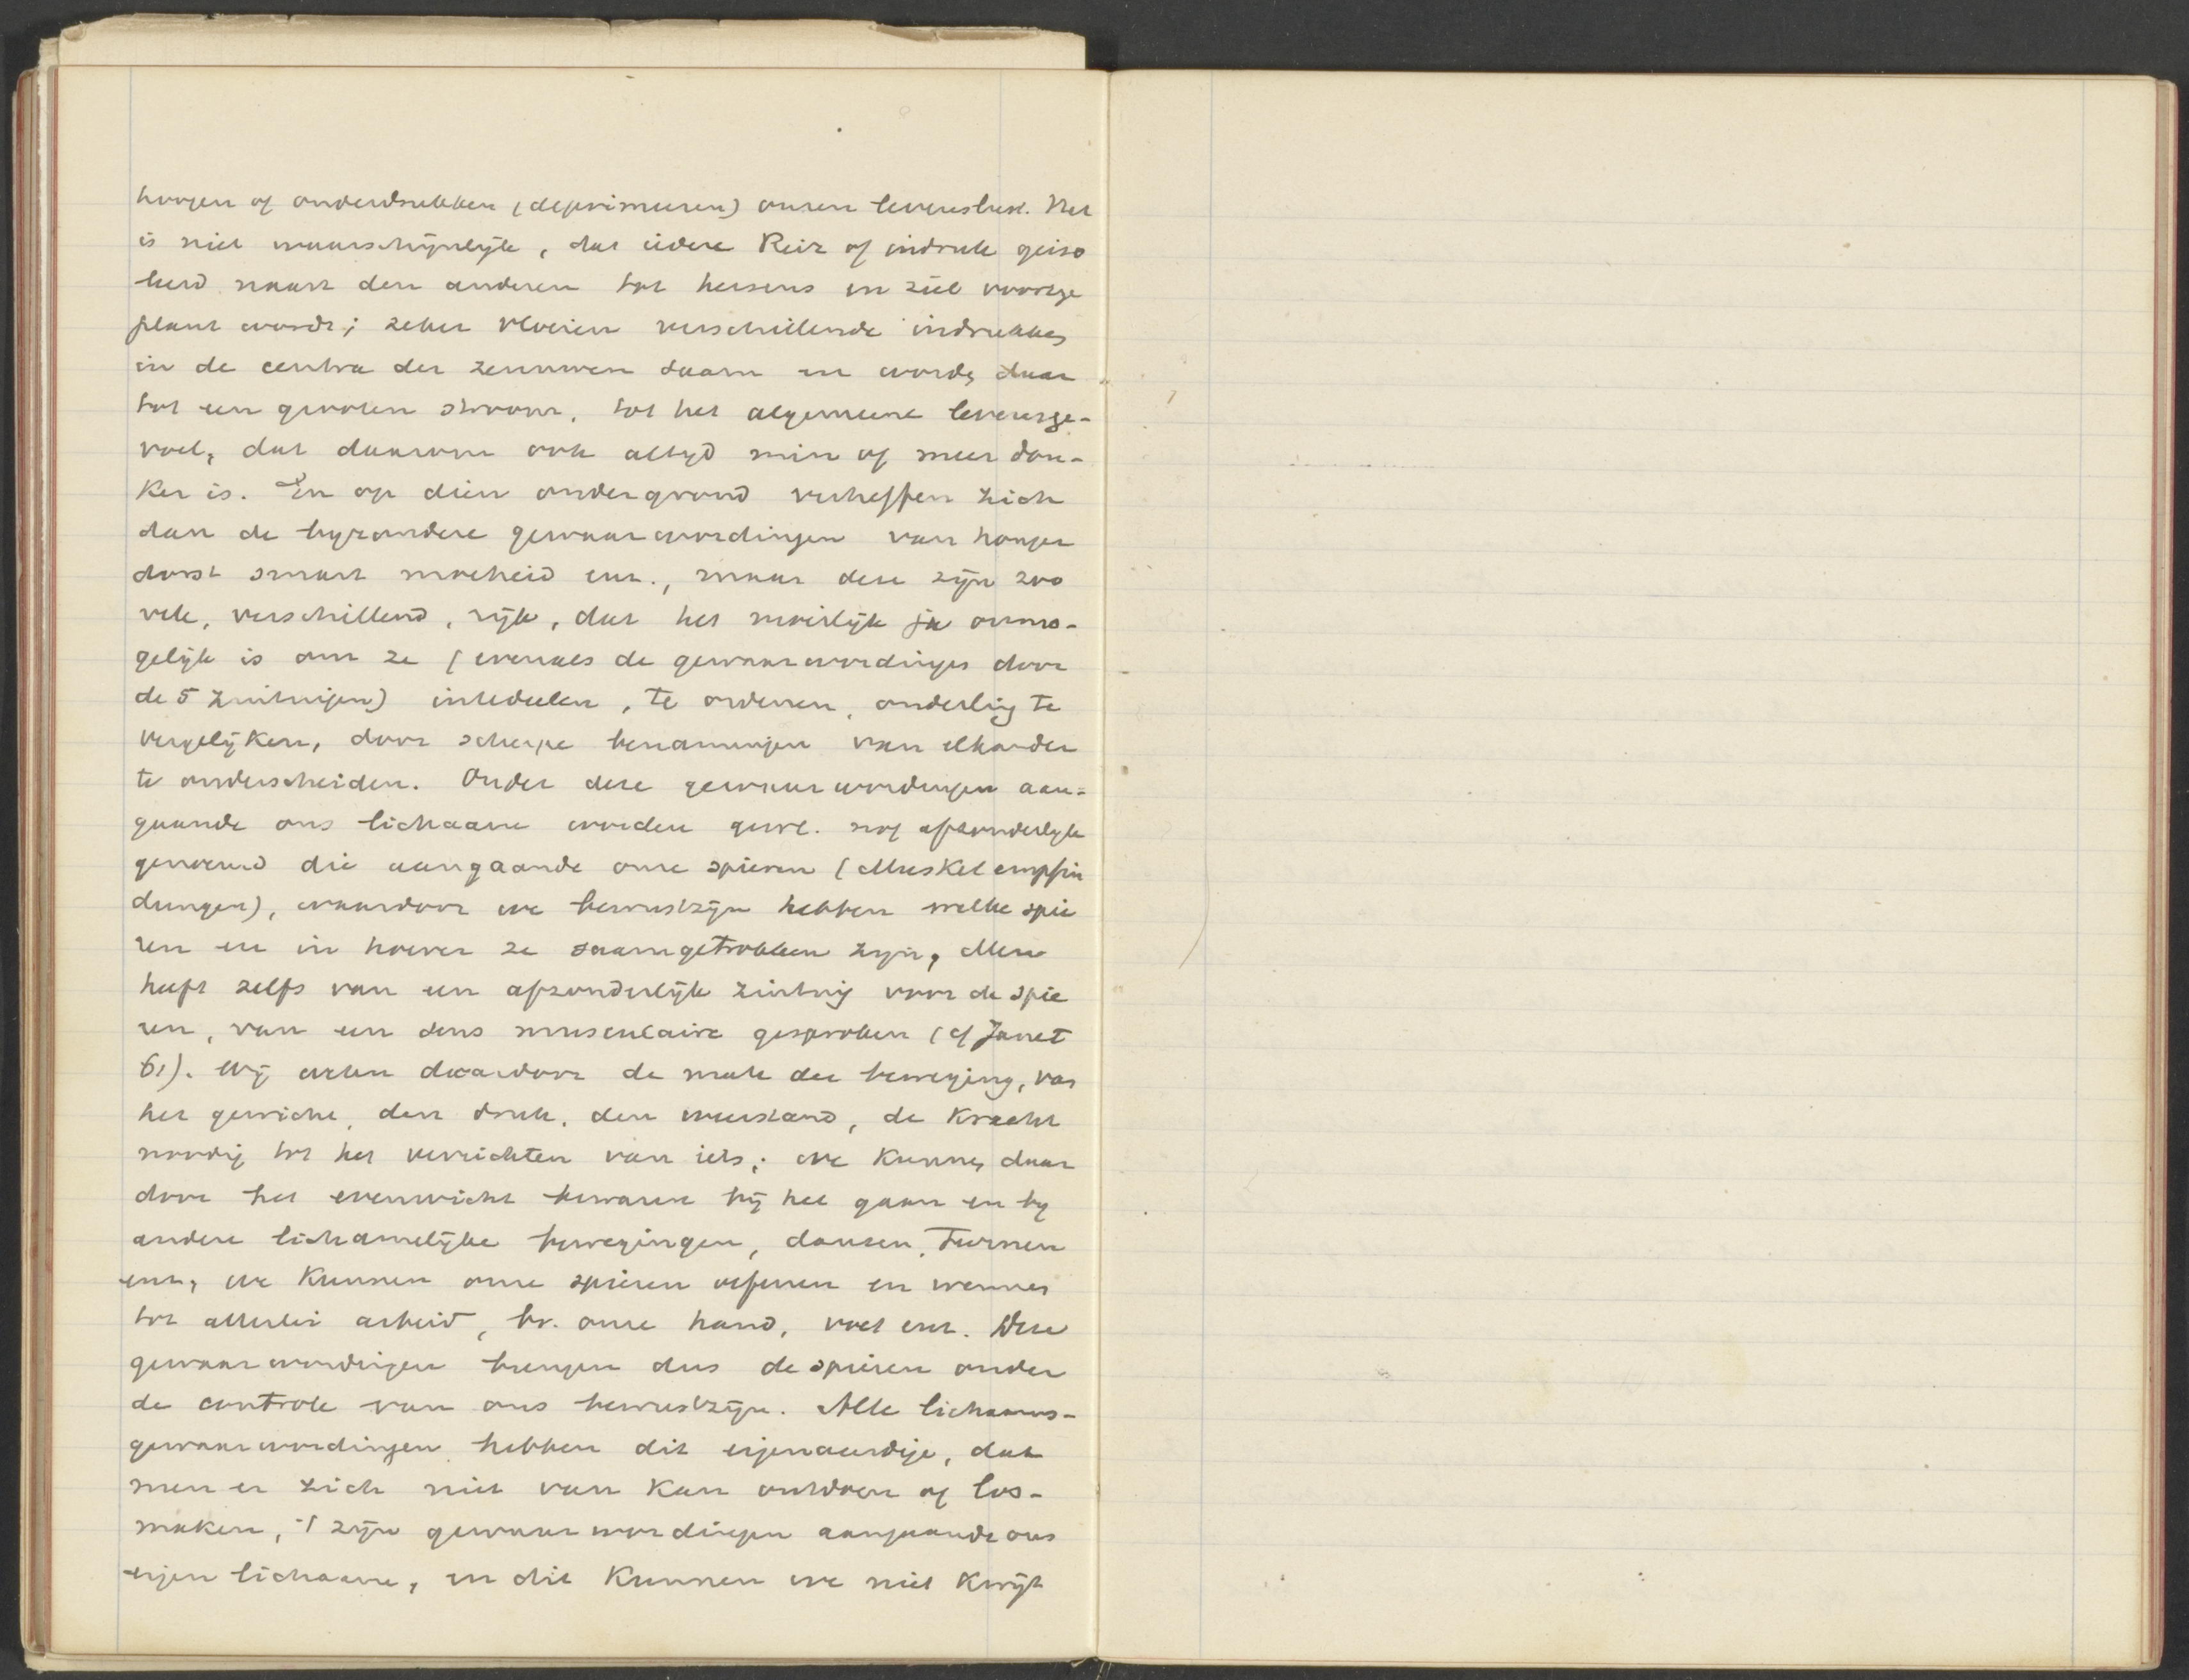 hoogen of onderdrukken (deprimeeren) onzen levenslust. Het
is niet waarschijnlijk, dat iedere Reiz of indruk geiso
leerd naast den anderen tot hersens en ziel voortge
plant wordt; zeker vloeien verschillende indrukken
in de centra der zenuwen saam en worden daar
tot een grooten stroom, tot het algemeene levensge-
voel, dat daarom ook altyd min of meer don-
ker is. En op dien ondergrond verheffen zich
dan de byzondere gewaarwordingen van honger
dorst smart moeheid enz., maar deze zijn zoo
vele, verschillend, rijk, dat het moeilijk ja onmo-
gelijk is om ze (evenals de gewaarwordingen door
de 5 zintuigen) intedeelen, te ordenen, onderling te
vergelijken, door scherpe benamingen van elkander
te onderscheiden. Onder deze gewaarwordingen aan-
gaande ons lichaam worden gew. nog afzonderlijk
genoemd die aangaande onze spieren (Muskelempfin
dungen), waardoor we bewustzijn hebben welke spie
ren en in hoever ze saamgetrokken zijn, Men
heeft zelfs van een afzonderlijk zintuig voor de spie
ren, van een sens musculaire gesproken (cf Janet
61). Wij weten daardoor de mate der beweging, van
het gewicht, den druk, den weerstand, de kracht
noodig tot het verrichten van iets; we kunnen daar
door het evenwicht bewaren bij het gaan en by
andere lichamelijke bewegingen, dansen, Turnen
enz, we kunnen onze spieren oefenen en wennen
tot allerlei arbeid, bv. onze hand, voet enz. Deze
gewaarwordingen brengen dus de spieren onder
de controle van ons bewustzijn. Alle lichaams-
gewaarwordingen hebben dit eigenaardige, dat
men er zich niet van kan ontdoen of los-
maken, 't zijn gewaarwordingen aangaande ons
eigen lichaam, en dit kunnen we niet kwijt